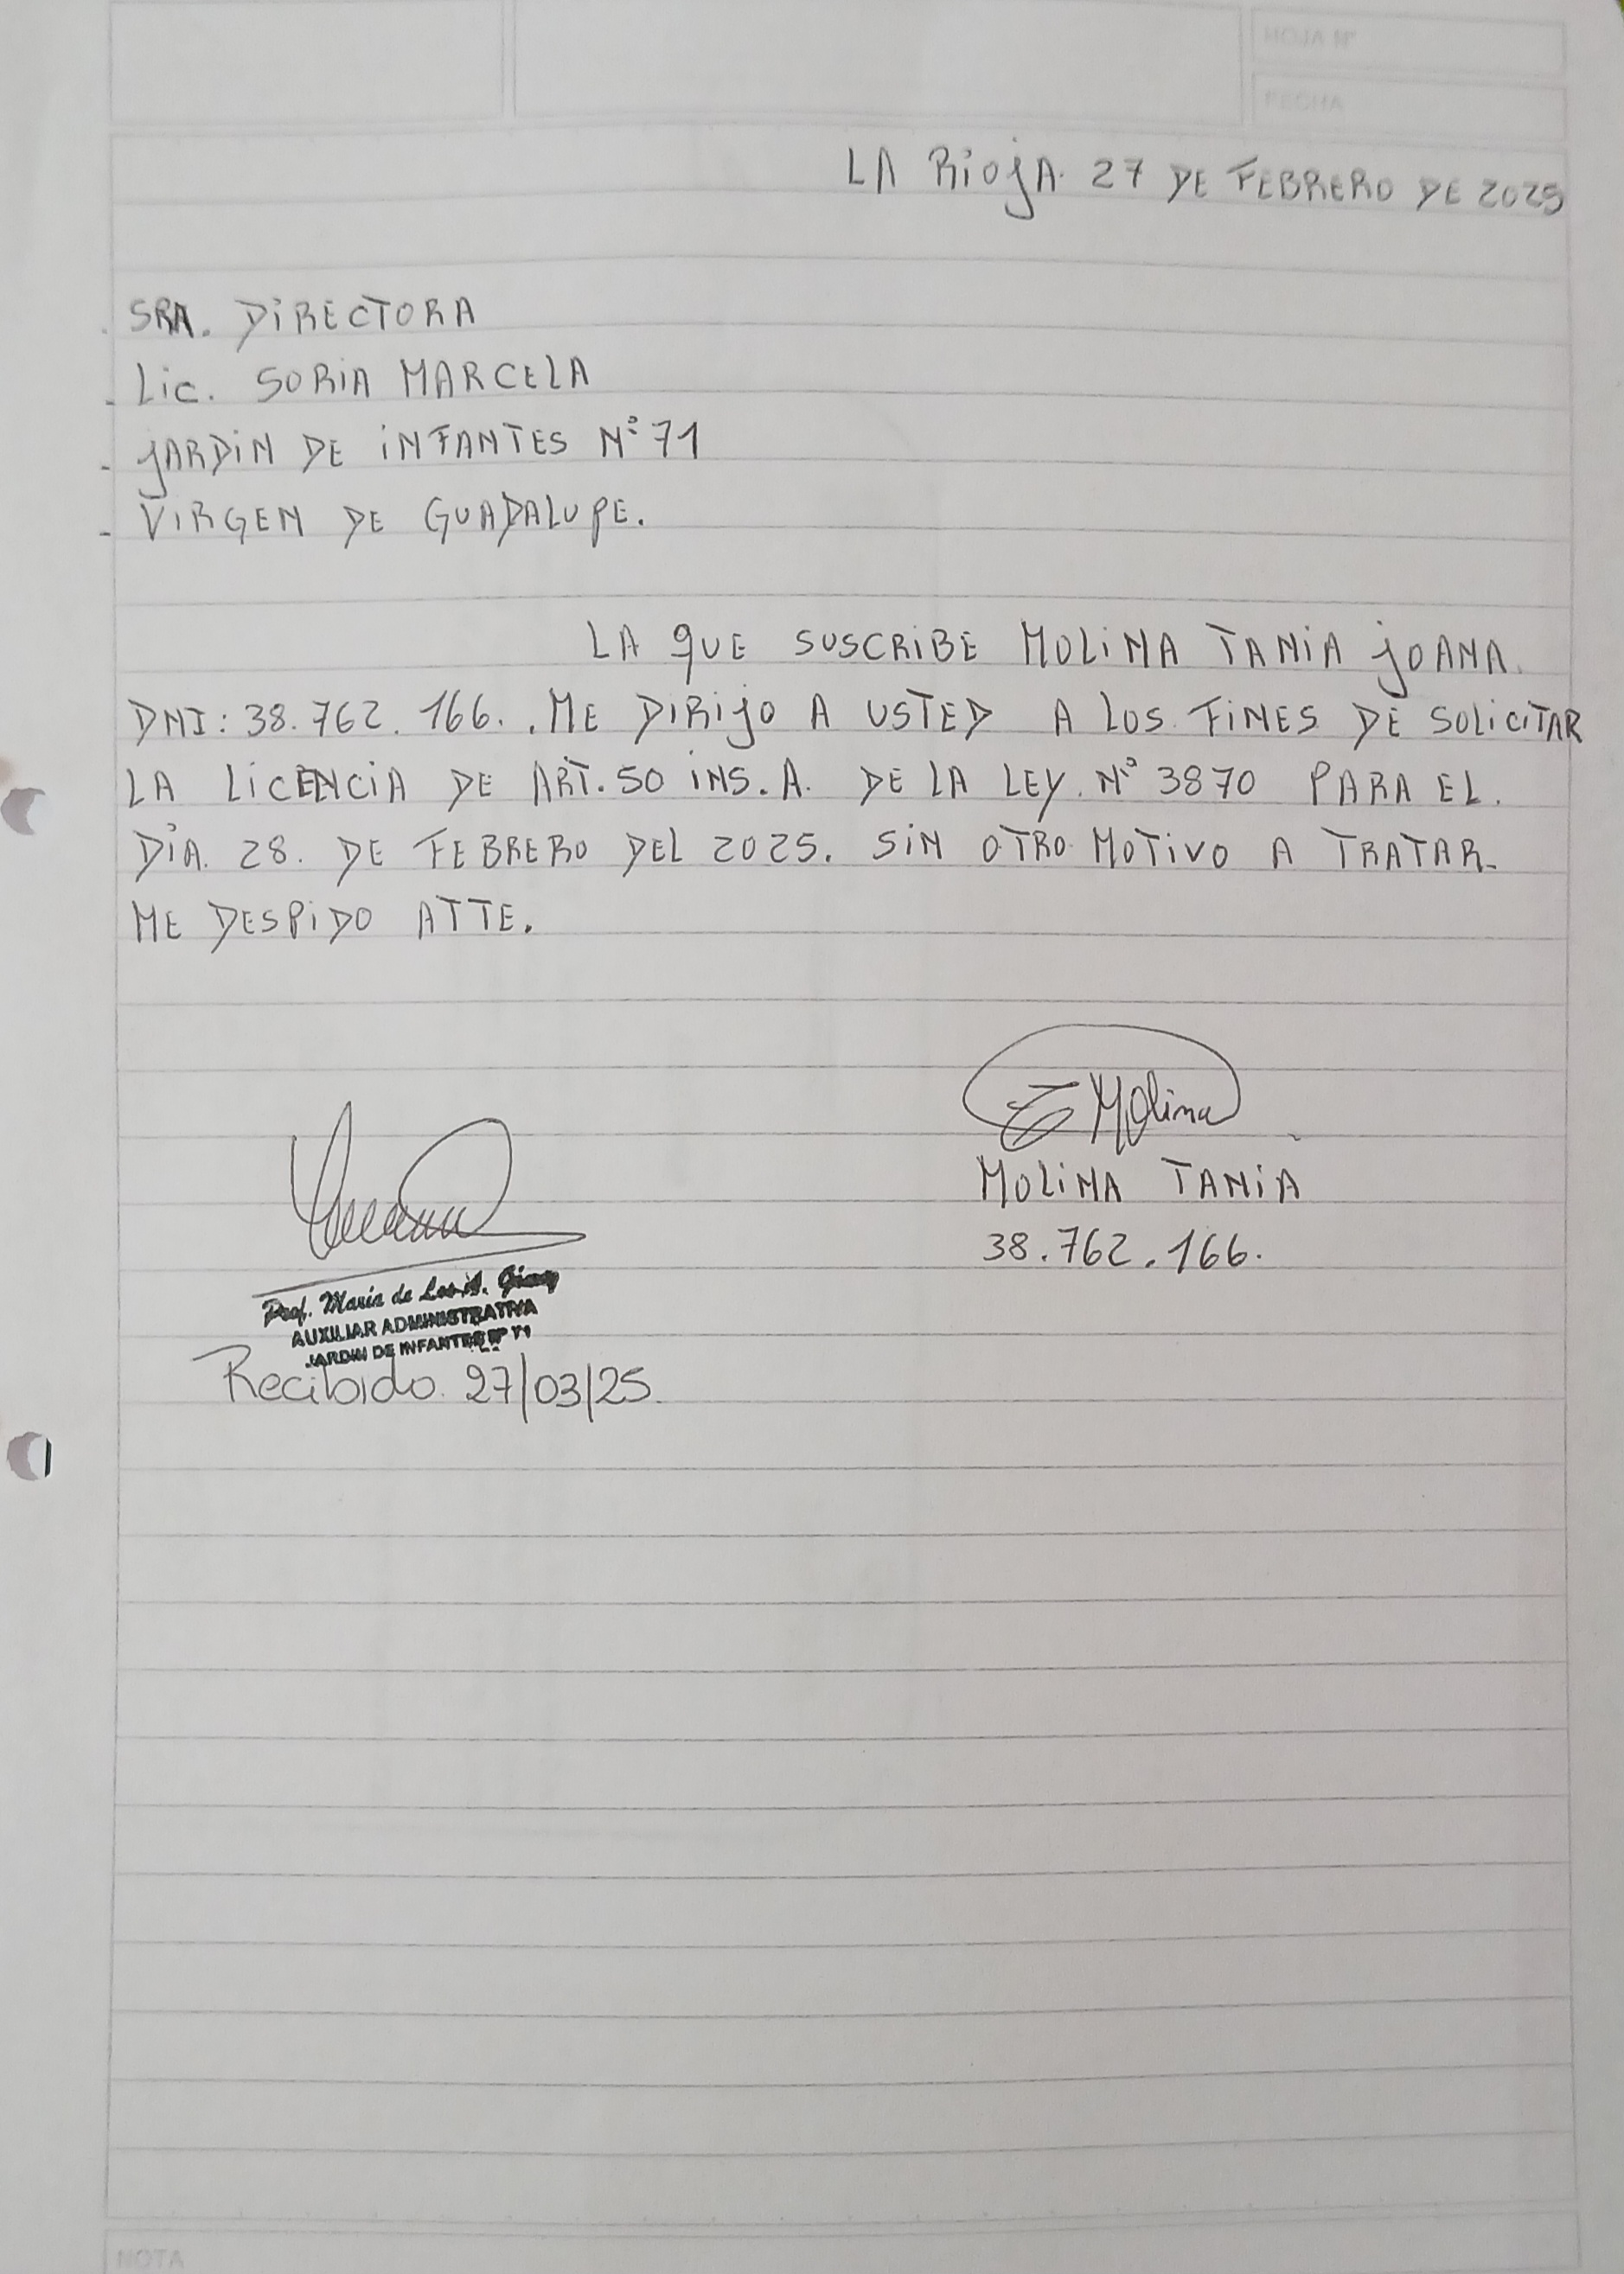 HOJA Nº
FECHA
LA RiOjA. 27 DE FEBRERO DE 2025
SRA. DiRECTORA
Lic. SORiA MARCELA
- jARDiN DE iNFANTES Nº 71
- ViRGEN DE GUADALUPE.
LA qUE SUSCRiBE MOLiNA TANiA jOANA.
DNI: 38.762.166. .ME DIRijO A USTED A LOS FiNES DE SOLiCiTAR
LA LiCENCiA DE ART. 50 iNS. A. DE LA LEY. Nº 3870 PARA EL.
DíA. 28. DE FEBRERO DEL 2025. SiN OTRO MOTiVO A TRATAR.
ME DESPiDO ATTE.
Molina
MOLiNA TANiA
38.762.166.
Prof. María de Los A.
AUXILIAR ADMINISTRATIVA
JARDIN DE INFANTES Nº 71
Recibido. 27/03/25.
NOTA